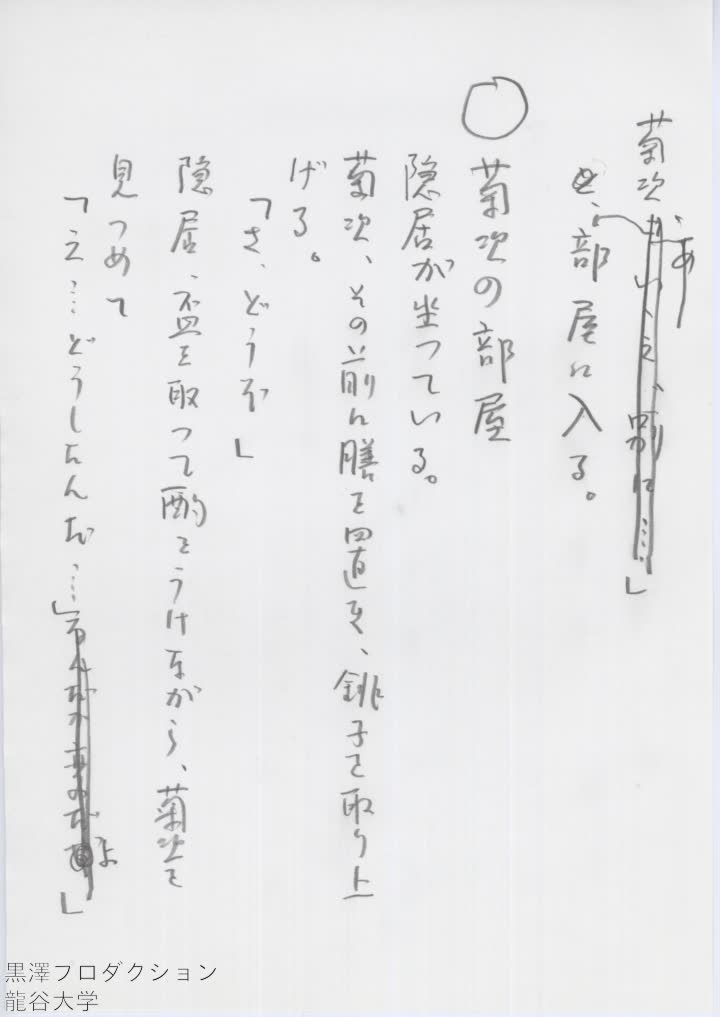 菊次「いゝえ、別に……」
と、部屋に入る。
○菊次の部屋
隠居が坐っている。
菊次、その前に膳を置き、銚子を取り上
げる。
「さ、どうぞ」
隠居、盃を取って酌をうけながら、菊次を
見つめて
「え…どうしたんだ…」
黒澤プロダクション
龍谷大学